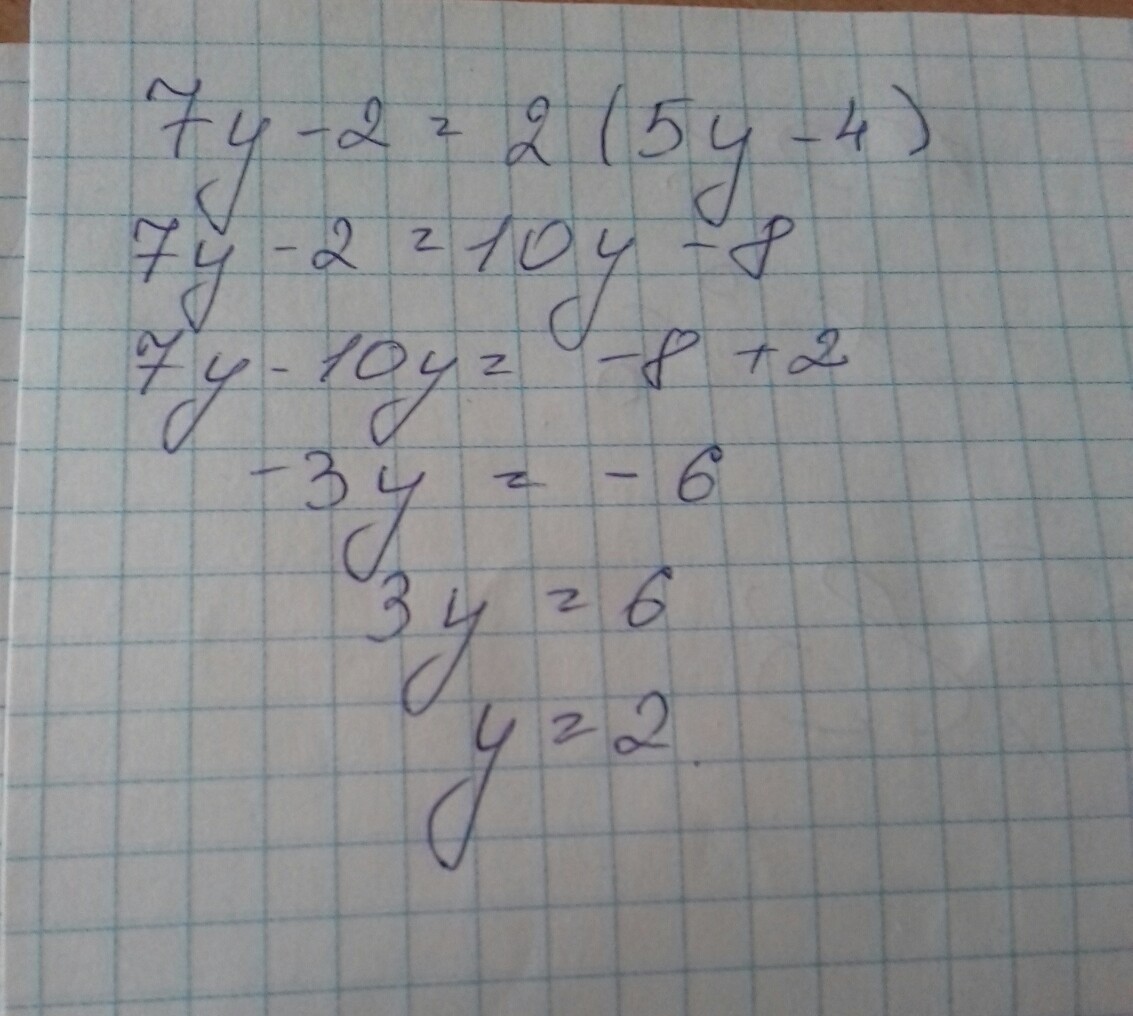 7y - 2 = 2 (5y - 4)
7y - 2 = 10y - 8
7y - 10y = - 8 + 2
- 3y = - 6
3y = 6
y = 2.